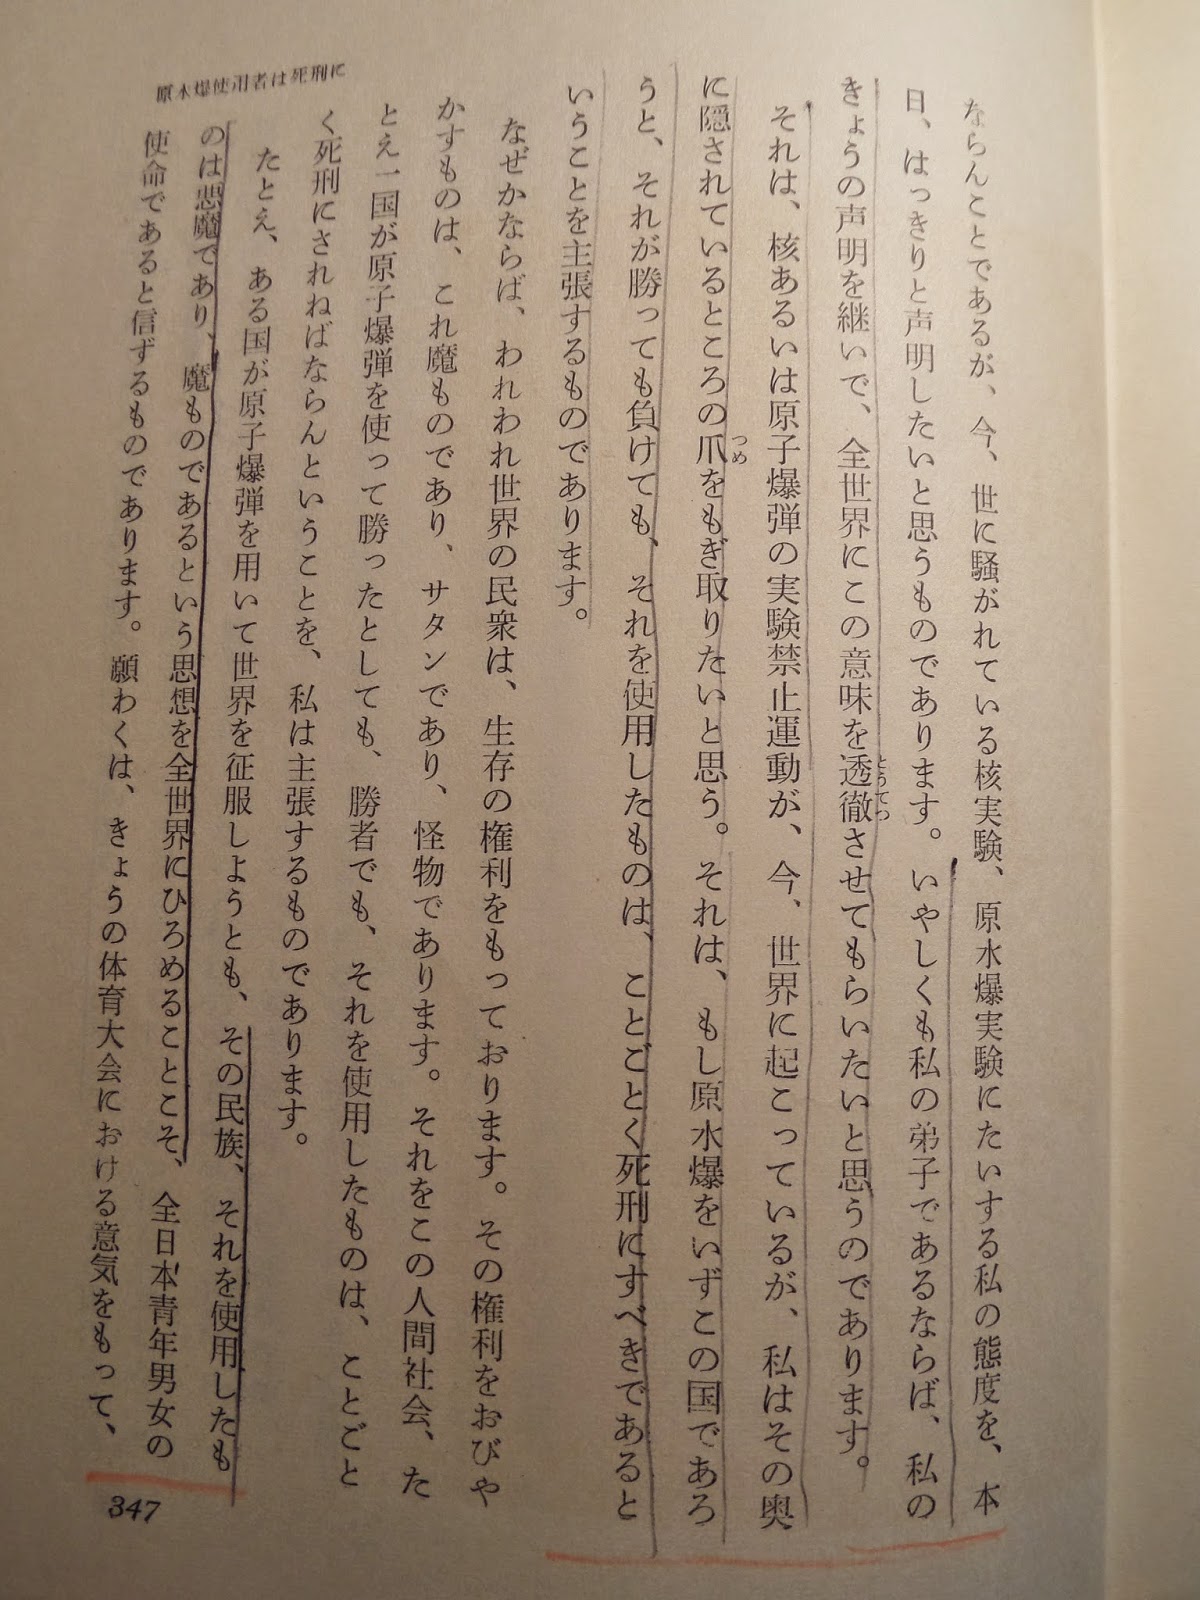 原水爆使用者は死刑に
ならんことであるが、今、世に騒がれている核実験、原水爆実験にたいする私の態度を、本
日、はっきりと声明したいと思うものであります。いやしくも私の弟子であるならば、私の
きょうの声明を継いで、全世界にこの意味を透徹させてもらいたいと思うのであります。
とうてつ
それは、核あるいは原子爆弾の実験禁止運動が、今、世界に起こっているが、私はその奥
に隠されているところの爪をもぎ取りたいと思う。それは、もし原水爆をいずこの国であろ
つめ
うと、それが勝っても負けても、それを使用したものは、ことごとく死刑にすべきであると
いうことを主張するものであります。
なぜかならば、われわれ世界の民衆は、生存の権利をもっております。その権利をおびや
かすものは、これ魔ものであり、サタンであり、怪物であります。それをこの人間社会、た
とえ一国が原子爆弾を使って勝ったとしても、勝者でも、それを使用したものは、ことごと
く死刑にされねばならんということを、私は主張するものであります。
たとえ、ある国が原子爆弾を用いて世界を征服しようとも、その民族、それを使用したも
のは悪魔であり、魔ものであるという思想を全世界にひろめることこそ、全日本青年男女の
使命であると信ずるものであります。願わくは、きょうの体育大会における意気をもって、
347